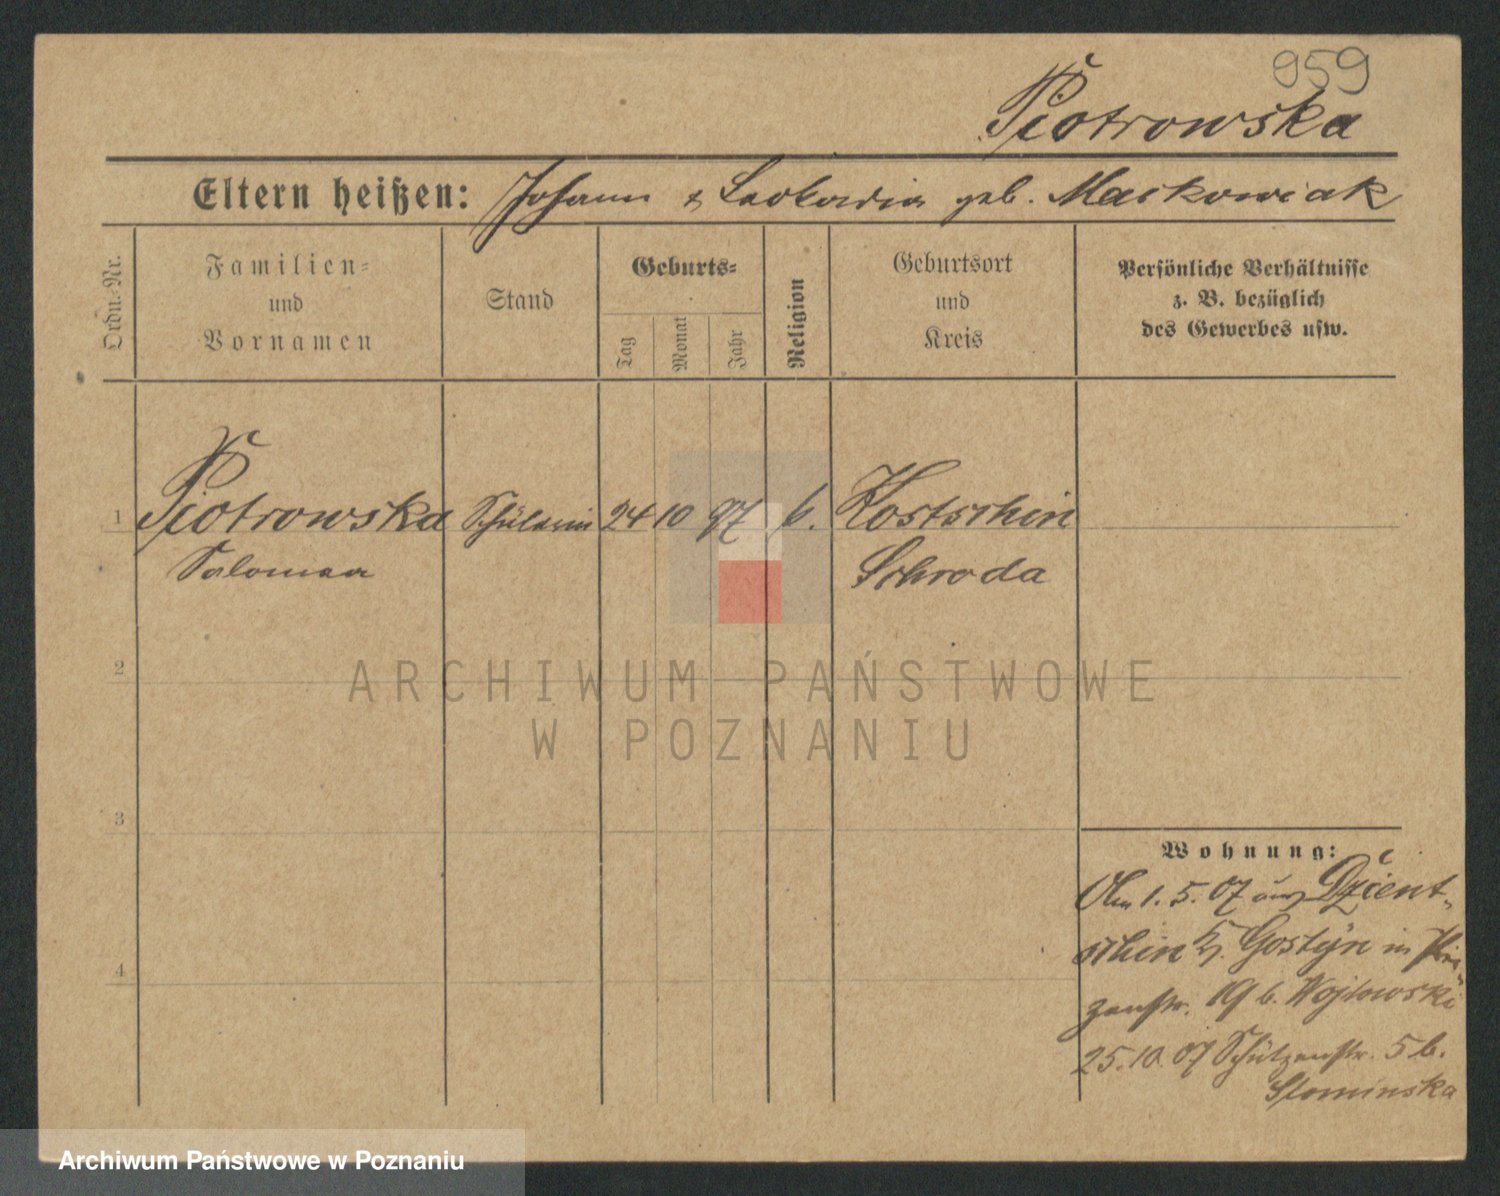 959
Piotrowska
Eltern heißen: Johann & Leokardia geb. Maćkowiak
Ordn.-Nr.
Familien-
und
Vornamen
Stand
Geburts-
Tag
Monat
Jahr
Religion
Geburtsort
und
Kreis
Persönliche Verhältnisse
z. B. bezüglich
des Gewerbes usw.
1 Piotrowska Schülerin 24 10 97 k. Kostschin
Salomea Schroda
2
ARCHIWUM PAŃSTWOWE
W POZNANIU
3
Wohnung:
Am 1. 5. 07 aus Dzient-
schin K. Gostyn in
19 b. Wojtowski
25. 10. 07 Schützenstr. 5 b.
Slominska
4
Archiwum Państwowe w Poznaniu